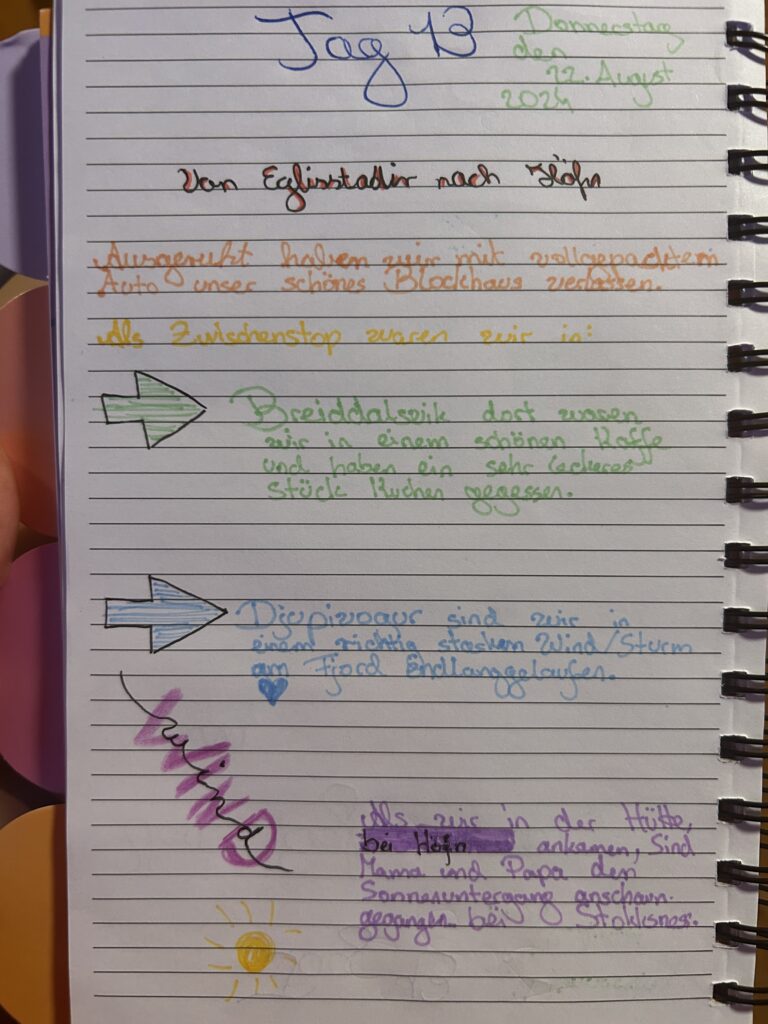 Tag 13
Donnerstag
den
22. August
2024
Von Eglisstadir nach Höfn
Ausgeruht haben wir mit vollgepacktem
Auto unser schönes Blockhaus verlassen.
Als Zwischenstop waren wir in:
Breiddalsvik dort waren
wir in einem schönen Kaffe
und haben ein sehr leckeres
Stück Kuchen gegessen.
Djupivogur sind wir in
einem richtig starken Wind/Sturm
am Fjord Endlanggelaufen.
Wind
Als wir in der Hütte,
bei Höfn ankamen, Sind
Mama und Papa den
Sonnenuntergang anschaun.
gegangen bei Stokksness.